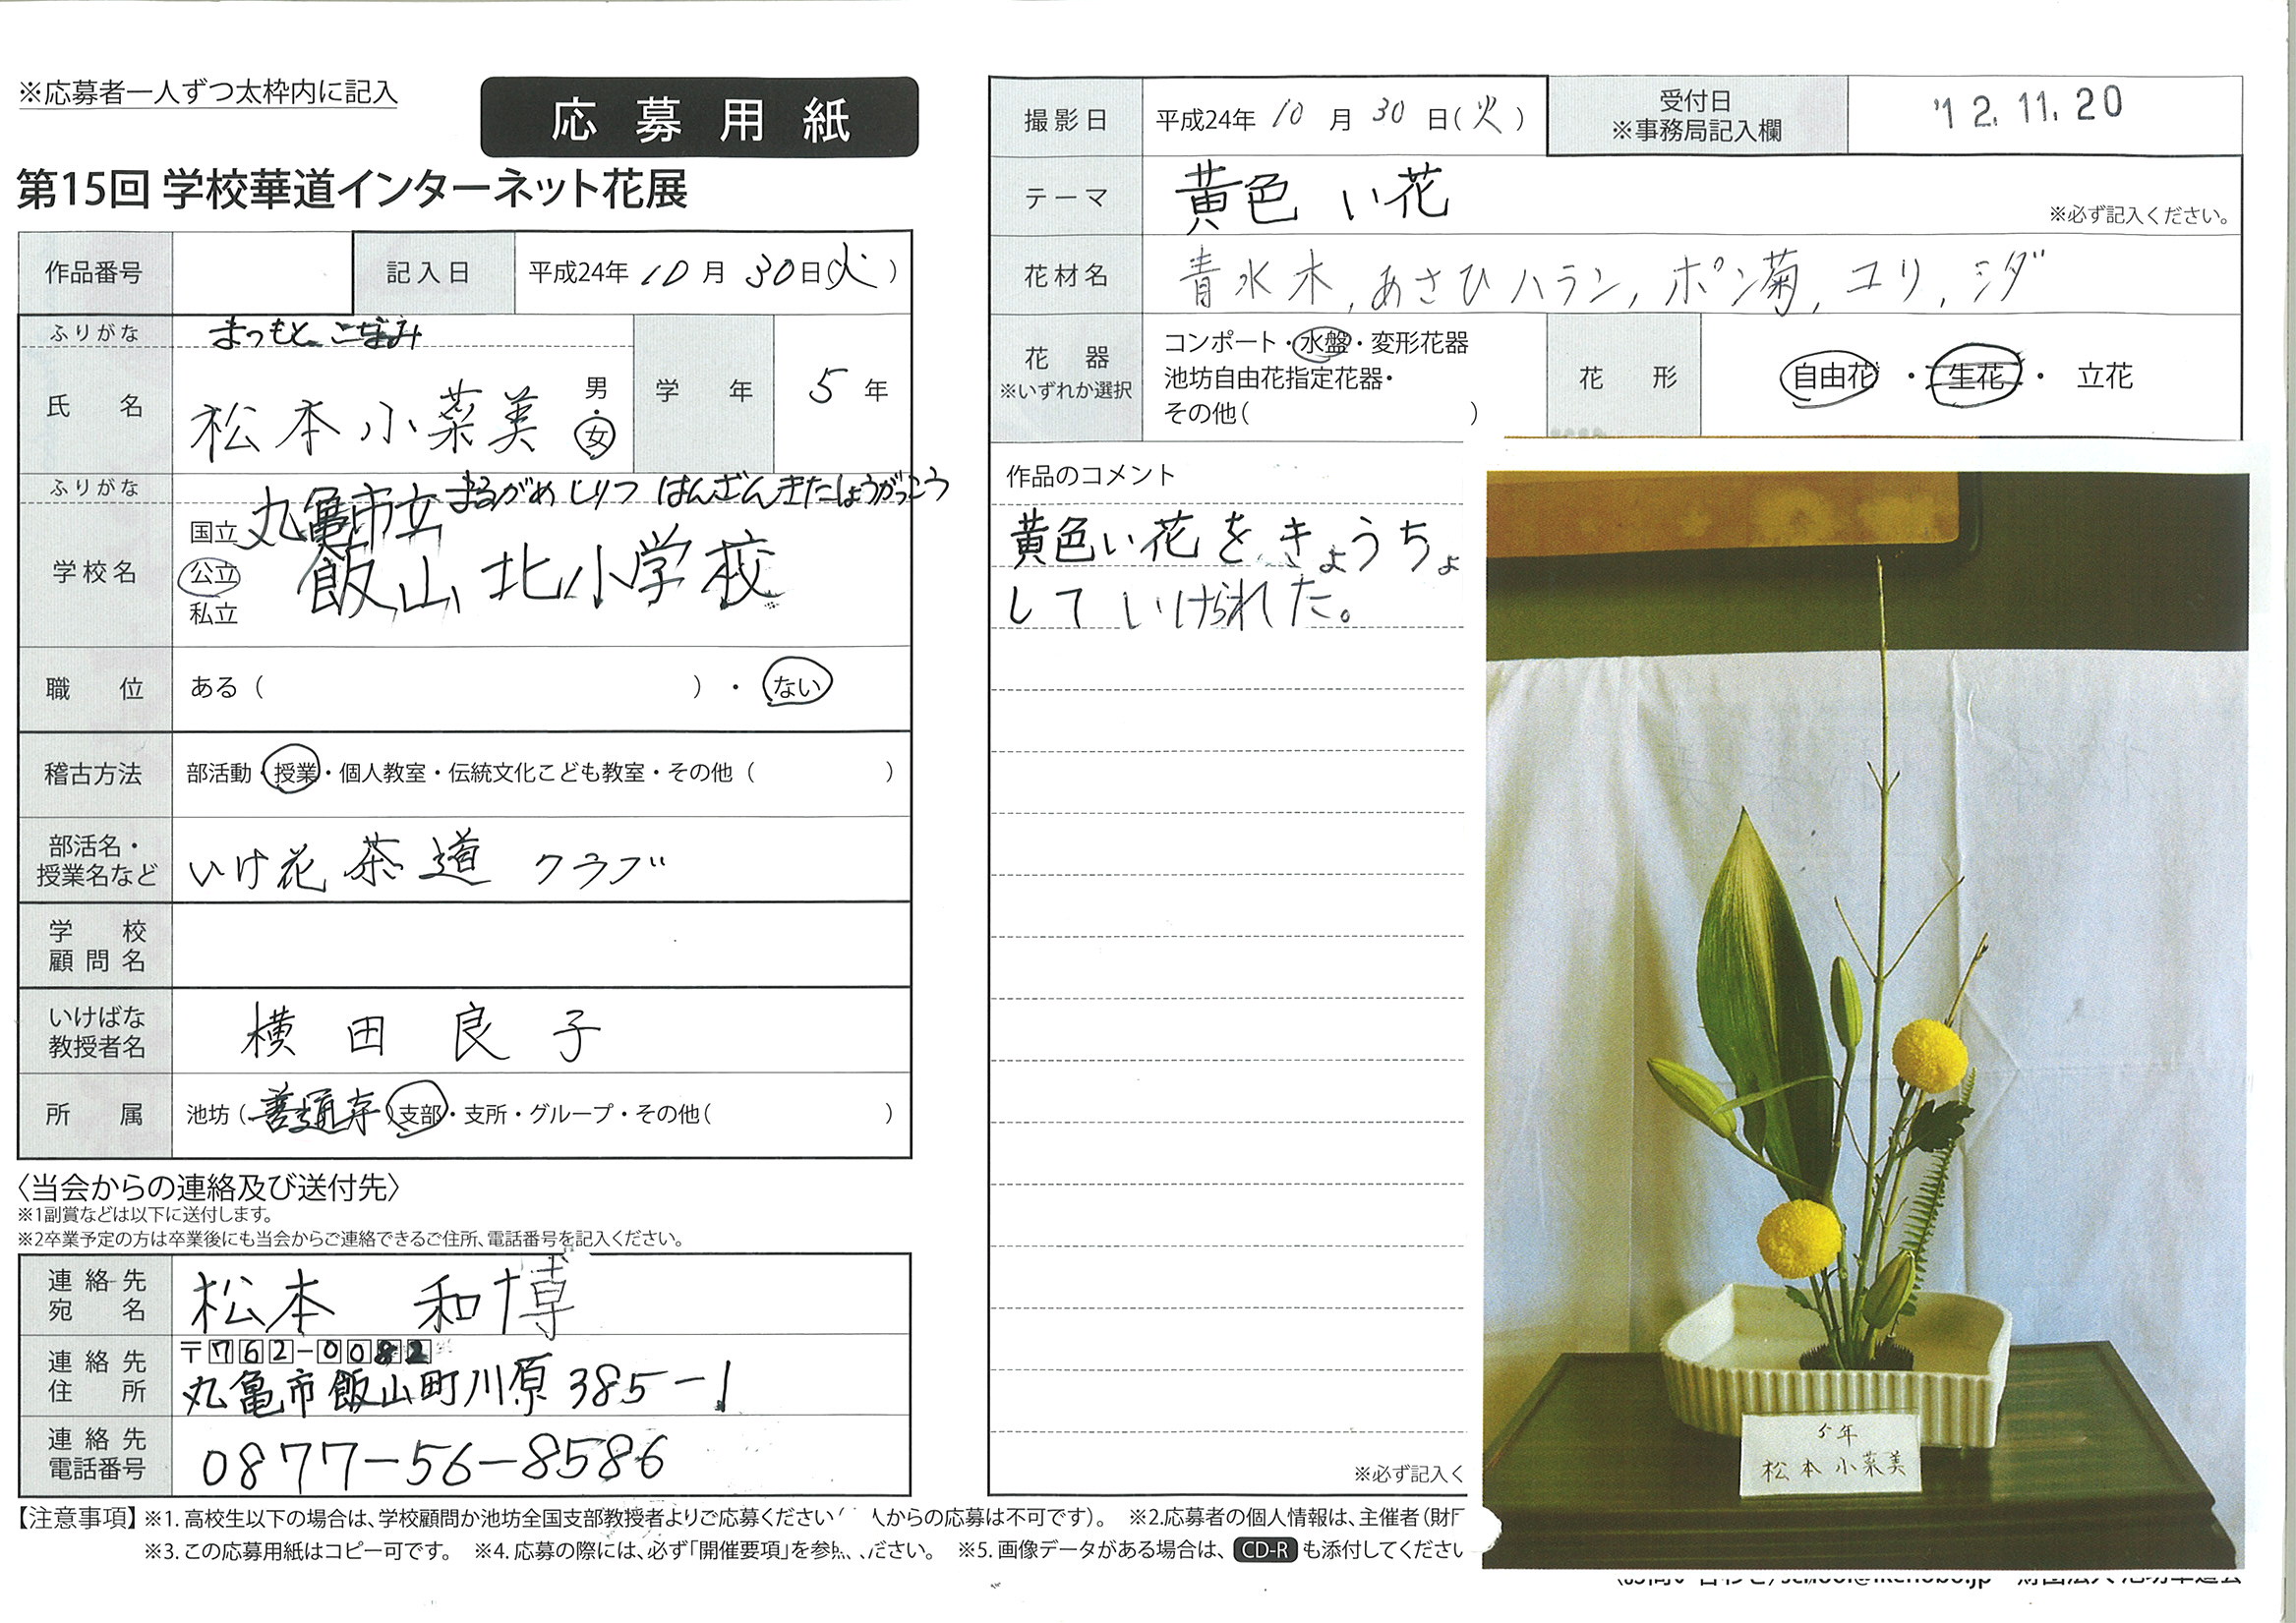 ※応募者一人ずつ太枠内に記入
応募用紙
第15回 学校華道インターネット花展
作品番号
記入日 平成24年 10月 30日(火)
ふりがな まつもと こなみ
氏名 松本小菜美 男・女
学年 5年
ふりがな まるがめしりつ はんざんきたしょうがっこう
学校名 国立 公立 私立 丸亀市立
飯山北小学校
職位 ある( )・ない
稽古方法 部活動・授業・個人教室・伝統文化こども教室・その他( )
部活名・授業名など いけ花茶道クラブ
学校顧問名
いけばな教授者名 横田良子
所属 池坊(善通寺)支部・支所・グループ・その他( )
〈当会からの連絡及び送付先〉
※1副賞などは以下に送付します。
※2卒業予定の方は卒業後にも当会からご連絡できるご住所、電話番号を記入ください。
連絡先宛名 松本 和博
連絡先住所 〒762-0082
丸亀市飯山町川原385-1
連絡先電話番号 0877-56-8586
撮影日 平成24年 10月 30日(火)
受付日 ※事務局記入欄 '12.11.20
テーマ 黄色い花 ※必ず記入ください。
花材名 青水木,あさひハラン,ポン菊,ユリ,シダ
花器 ※いずれか選択 コンポート・水盤・変形花器
池坊自由花指定花器・
その他( )
花形 自由花・生花・立花
作品のコメント
黄色い花をきょうちょ
していけられた。
※必ず記入く
5年
松本小菜美
【注意事項】※1.高校生以下の場合は、学校顧問か池坊全国支部教授者よりご応募ください(人からの応募は不可です)。 ※2.応募者の個人情報は、主催者(財団
※3.この応募用紙はコピー可です。 ※4.応募の際には、必ず「開催要項」を参照ください。 ※5.画像データがある場合は、CD-Rも添付してくださ